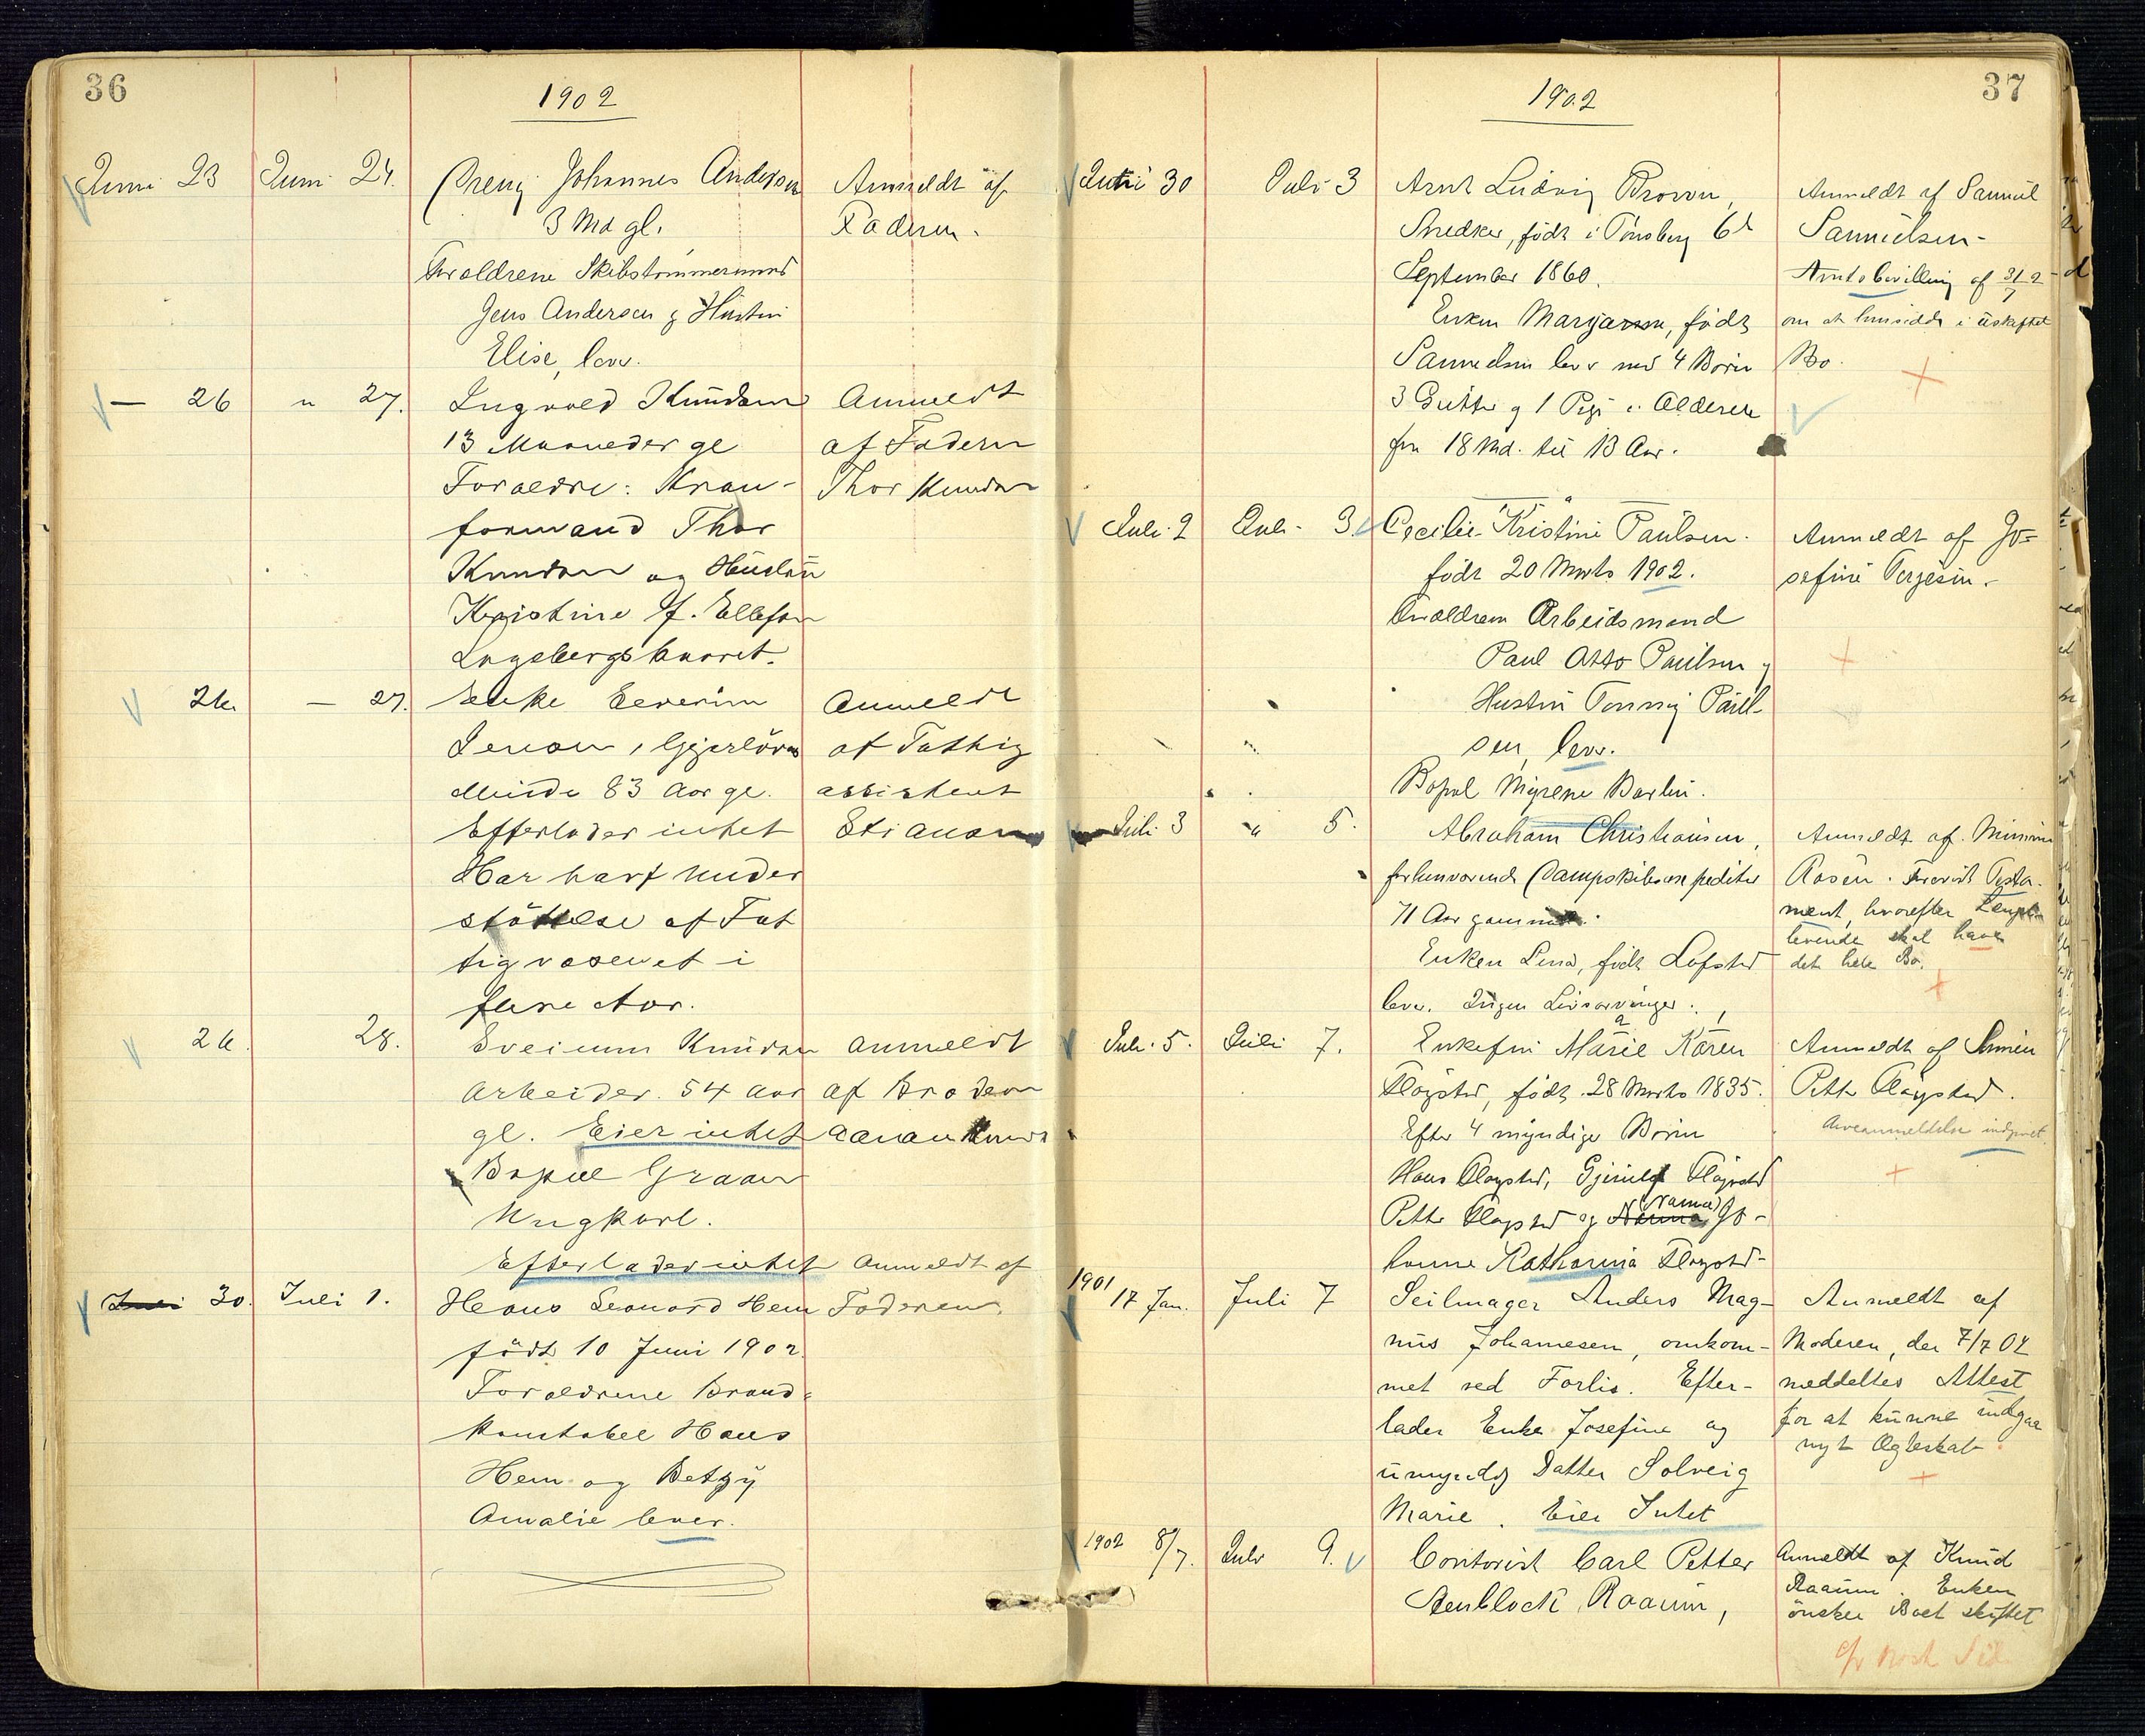 36
1902
Juni 23 Juni 24. Dreng Johannes Andersen Anmeldt af
3 Md gl. Faderen.
Forældrene Skibstømmermand
Jens Andersen og Hustru
Elise, lever.
— 26 " 27. Ingvald Knudsen Anmeldt
13 Maaneder gl af Faderen
Forældre: Kran- Thor Knudsen
formand Thor
Knudsen og Hustru
Kristine f. Ellefsen
26. — 27. Enke Severine Anmeldt
Jensen, af Fattig
Minde 83 Aar gl. assistent
Efterlader intet Stianson
Har havt under
støttelse af Fat
tigvæsenet i
flere Aar.
26. 28. Sveinum Knudsen Anmeldt
Arbeider. 54 Aar af Broderen
gl. Eier intet
Bopæl Graaen
Ungkarl.
Efterlader intet Anmeldt af
Juni 30. Juli 1. Hans Leonard Hem Faderen.
født 10 Juni 1902.
Forældrene Brand-
konstabel Hans
Hem og Betzy
Amalie lever.
37
1902
Juni 30 Juli 3 Arnt Ludvig Brown, Anmeldt af Samuel
Snedker, født i Tønsberg 6d Samuelsen-
September 1860. Amtsbevilling af
Enken født om at hensidde i uskiftet
Samuelsen lever med 4 Børn Bo.
3 Gutter og 1 Pige i Alderen
fra 18 Md. til 13 Aar.
Juli 2 Juli 3. Cecilie Kristine Paulsen. Anmeldt af Jo-
født 20 Marts 1902. sefine Terjesen.
Forældrene Arbeidsmand
Paul Otto Paulsen og
Hustru Tonny Paul-
sen, lever.
Bopæl Myrene Barlin.
Juli 3 " 5. Abraham Christiansen, Anmeldt af Minnie
forhenværende Dampskibsexpeditør Rosen. Forevist Testa-
71 Aar gammel. ment, hvorefter Længst-
levende skal have
Enken Lena, født Løfsted det hele Bo.
lever. Ingen Livsarvinger.
Juli 5. Juli 7. Enkefru Marie Karen Anmeldt af Sønnen
Fløgsted, født 28 Marts 1835. Petter Fløgsted.
Efter 4 myndige Børn Arveanmeldelse indgivet.
Hans Fløgsted, Fløgsted
Petter Fløgsted og Nanna (Nanna) Jo-
hanne Katharina Fløgsted-
1901 17 Jan. Juli 7 Seilmager Anders Mag- Anmeldt af
nus Johannesen, omkom- Moderen, der 7/7 02
met ved Forlis. Efter- meddeltes Attest
lader Enke Josefine og for at kunne indgaa
nyt Ægteskab.
umyndig Datter Solveig
Marie. Eier Intet
1902 8/7. Juli 9. Contorist Carl Petter Anmeldt af Knud
Stenblock Raaum, Raaum. Enken
ønsker Boet skiftet